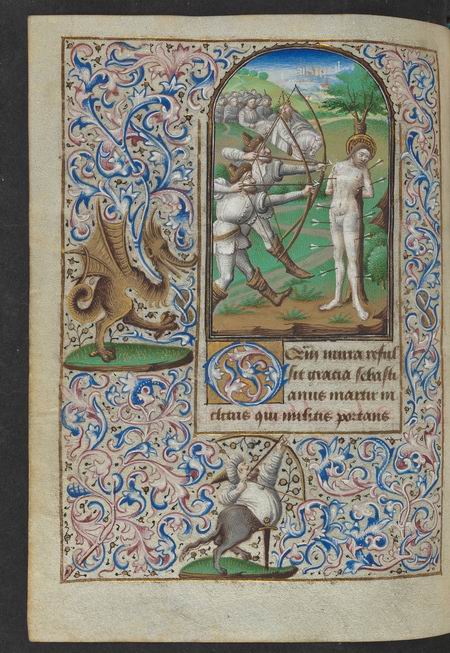 O Qm̄ mira reful
sit gracia sebasti
anus martir in
clitus qui militis portans